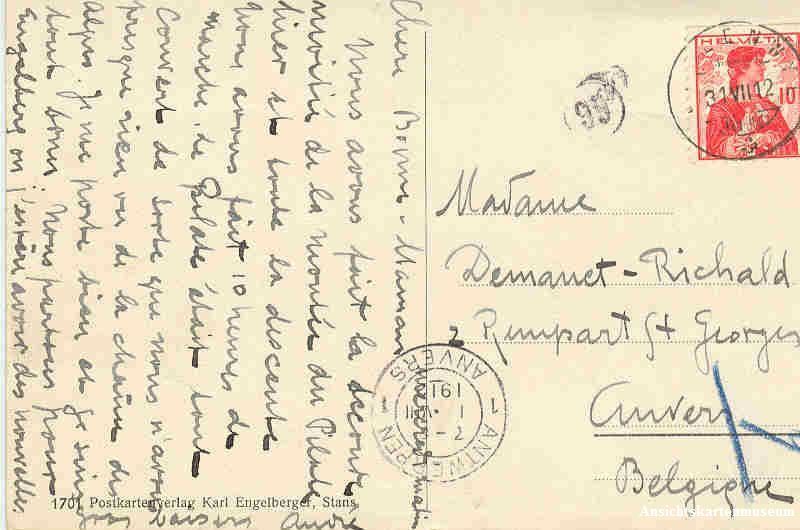 Chère Bonne-Maman
mercredi matin
Nous avons fait la seconde
moitié de la montée du Pilate
hier et toute la descente
nous avons fait 10 heures de
marche. Le Pilate était tout
Couvert de sorte que nous n'avons
presque rien vu de la chaîne des
Alpes. Je me porte bien et je suis
tout bruni. Nous partons pour
Engelberg où j'espère avoir des nouvelles.
gros baisers André
1701 Postkartenverlag Karl Engelberger, Stans
HELVETIA
10
31.VII.12
95
Madame
Demanet-Richald
2 Rempart St Georges
Anvers
Belgique
1 ANTWERPEN 1
ANVERS
Ansichtskartenmuseum